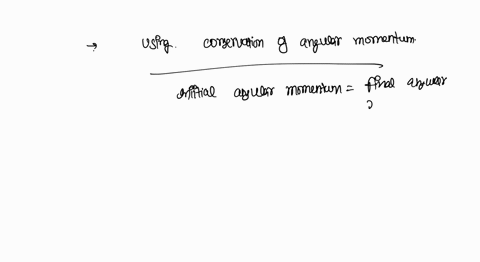 → using. conservation of angular momentum.
initial angular momentum = final angular